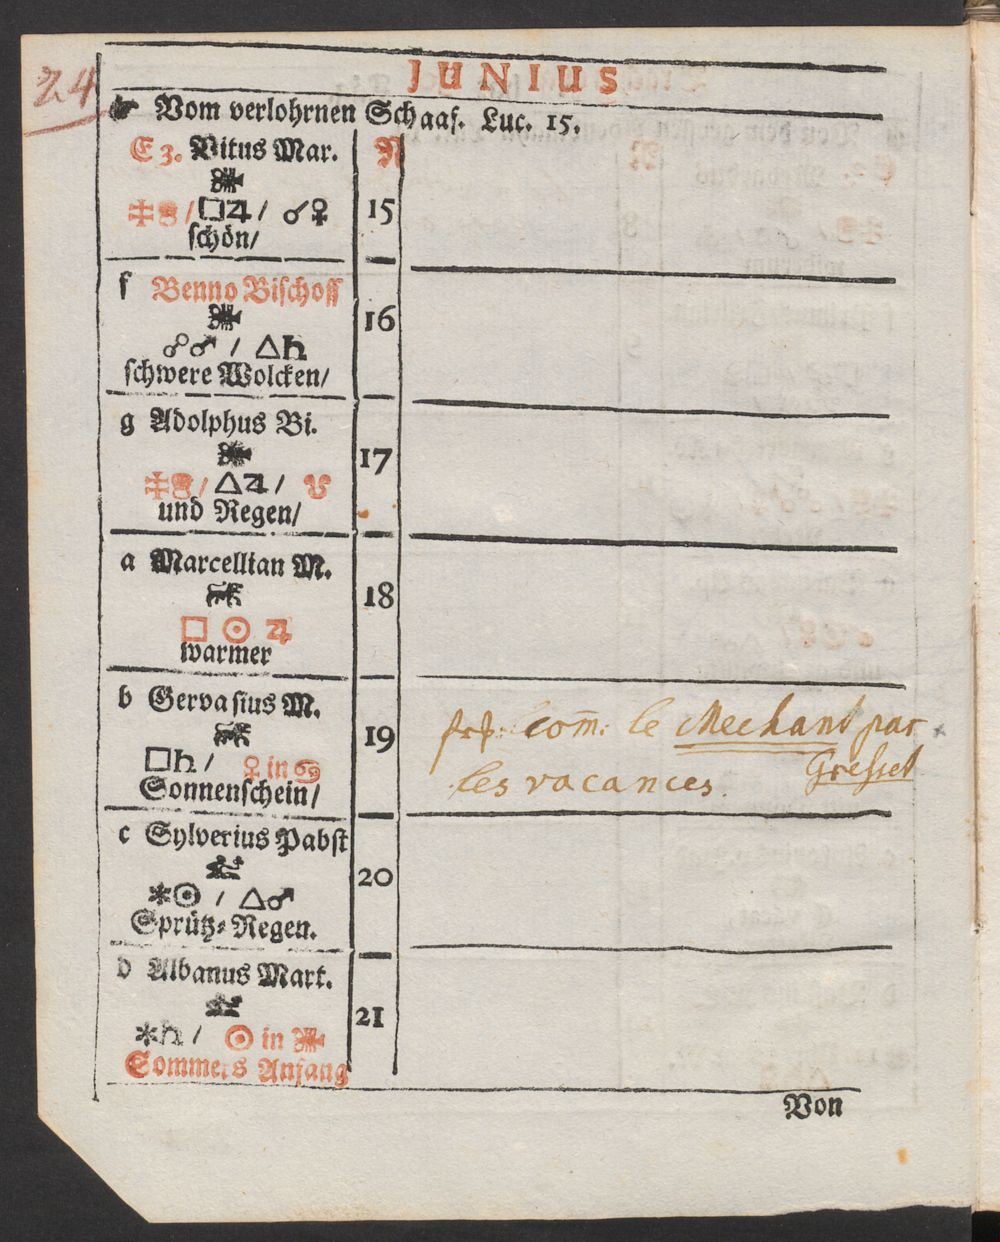 24
JUNIUS
☛ Vom verlohrnen Schaaf. Luc. 15.
E 3. Vitus Mar. N
□♃ / ☌♀ 15
schön/
f Benno Bischoff
16
☍♂ / △♄
schwere Wolcken/
g Adolphus Bi.
17
△♃ /
und Regen/
a Marcellian M.
18
□ ☉ ♃
warmer
b Gervasius M.
19 com̄: le Mechant par
□♄ / ♀ in ♋ Gresset
les vacances.
Sonnenschein/
c Sylverius Pabst
20
⚹☉ / △♂
Sprütz-Regen.
d Albanus Mart.
21
⚹♄ / ☉ in ♋
Sommers Anfang
Von